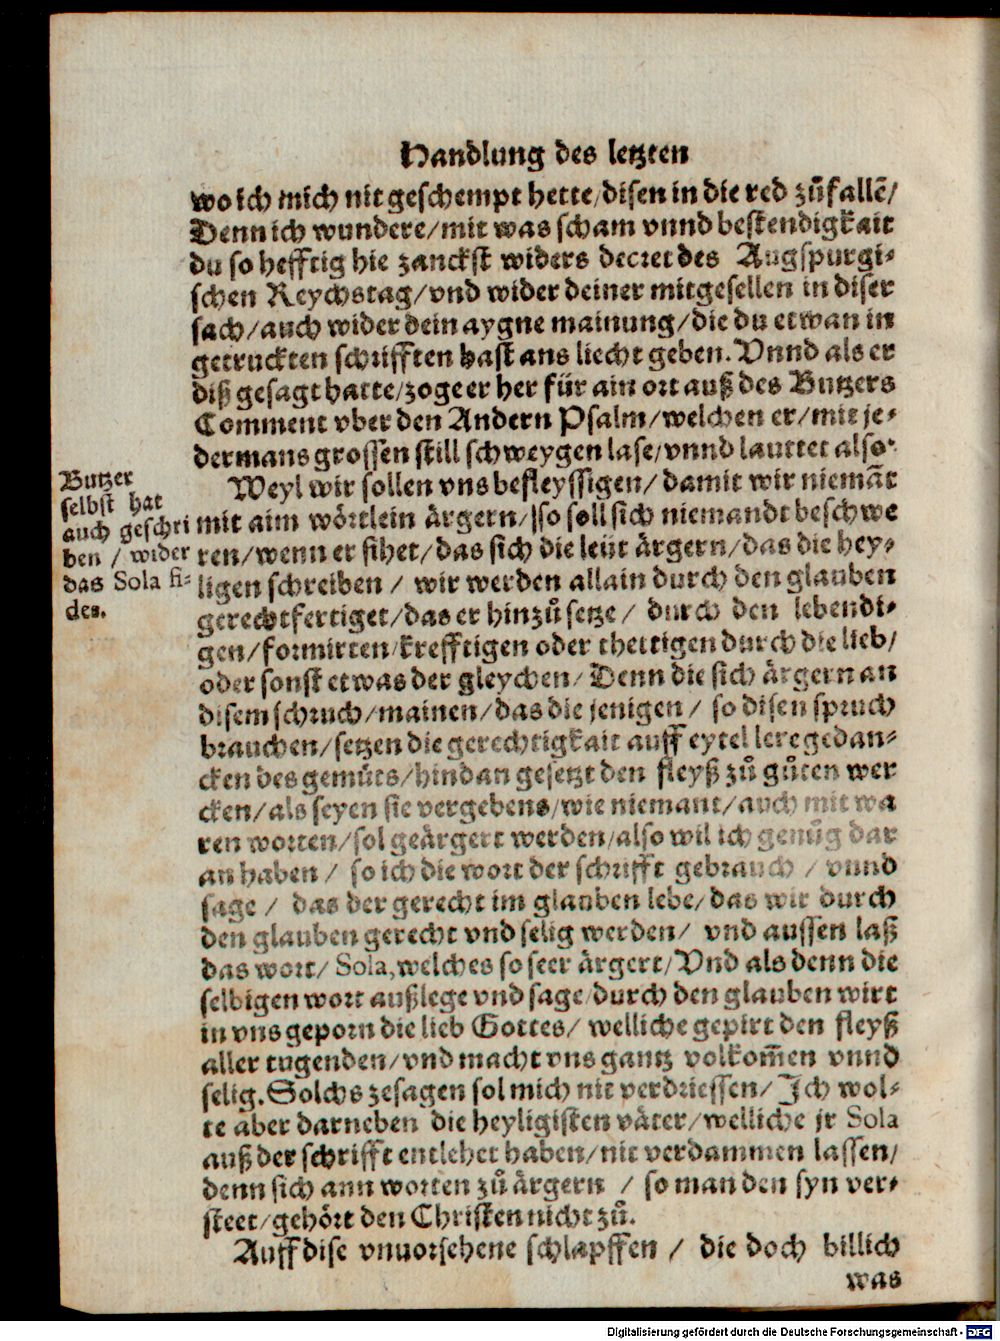 Handlung des letzten
wo ich mich nit geschempt hette/disen in die red zůfallẽ/
Denn ich wundere/mit was scham vnnd bestendigkait
du so hefftig hie zanckst widers decret des Augspurgi-
schen Reychstag/vnd wider deiner mitgesellen in diser
sach/auch wider dein aygne mainung/die du etwan in
getruckten schrifften hast ans liecht geben. Vnnd als er
diß gesagt hatte/zoge er her für ain ort auß des Butzers
Comment vber den Andern Psalm/welchen er/mit je-
dermans grossen still schweygen lase/vnnd lauttet also.
Butzer
selbst hat
auch geschri
ben / wider
das Sola fi-
des.
Weyl wir sollen vns befleyssigen/damit wir niemãt
mit aim wörtlein ärgern/so soll sich niemandt beschwe
ren/wenn er sihet/das sich die leüt ärgern/das die hey-
ligen schreiben / wir werden allain durch den glauben
gerechtfertiget/das er hinzů setze / durch den lebendi-
gen/formirten/krefftigen oder thettigen durch die lieb/
oder sonst etwas der gleychen/Denn die sich ärgern an
disem schruch/mainen/das die jenigen / so disen spruch
brauchen/setzen die gerechtigkait auff eytel lere gedan-
cken des gemüts/hindan gesetzt den fleyß zů gůten wer
cken/als seyen sie vergebens/wie niemant/auch mit wa
ren worten/sol geärgert werden/also wil ich genůg dar
an haben / so ich die wort der schrifft gebrauch / vnnd
sage / das der gerecht im glauben lebe/das wir durch
den glauben gerecht vnd selig werden/ vnd aussen laß
das wort/ Sola, welches so seer ärgert/Vnd als denn die
selbigen wort außlege vnd sage/durch den glauben wirt
in vns geporn die lieb Gottes/ welliche gepirt den fleyß
aller tugenden/vnd macht vns gantz volkom̃en vnnd
selig. Solchs zesagen sol mich nit verdriessen/Ich wol-
te aber darneben die heyligisten väter/welliche jr Sola
auß der schrifft entlehet haben/nit verdammen lassen/
denn sich ann worten zů ärgern / so man den syn ver-
steet/gehört den Christen nicht zů.
Auff dise vnuorsehene schlapffen / die doch billich
was
Digitalisierung gefördert durch die Deutsche Forschungsgemeinschaft - DFG